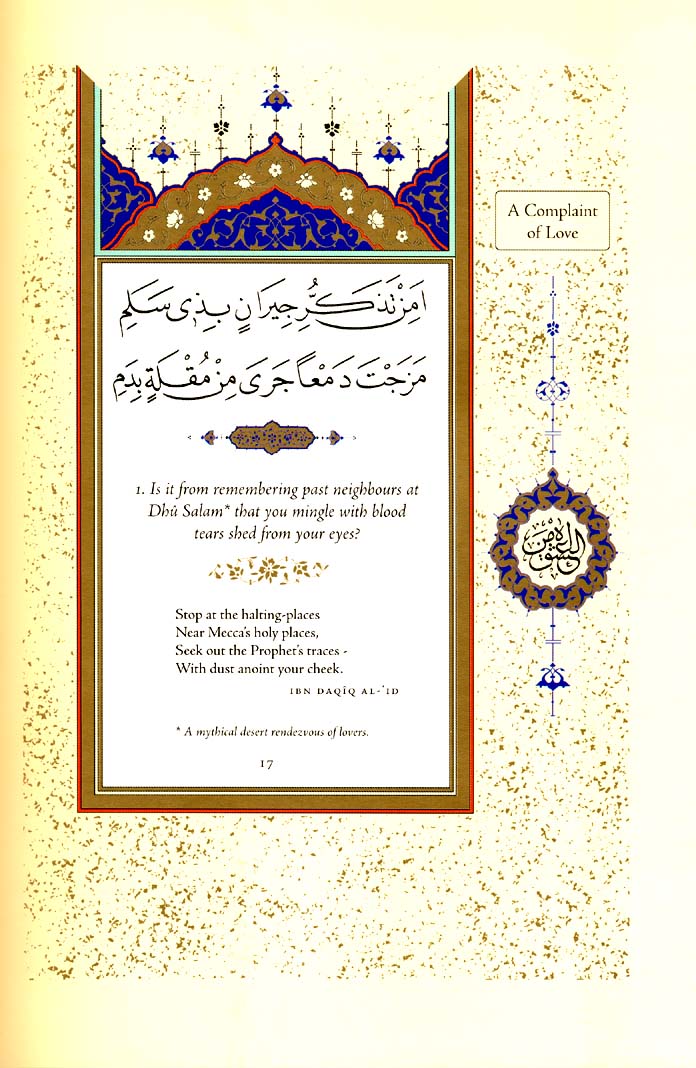 A Complaint
of Love
اَمِنْ تَذَكُّرِ جِيرَانٍ بِذِي سَلَمِ
مَزَجْتَ دَمْعًا جَرَى مِنْ مُقْلَةٍ بِدَمِ
1. Is it from remembering past neighbours at
Dhû Salam* that you mingle with blood
tears shed from your eyes?
Stop at the halting-places
Near Mecca's holy places,
Seek out the Prophet's traces -
With dust anoint your cheek.
IBN DAQÎQ AL-'ID
* A mythical desert rendezvous of lovers.
17